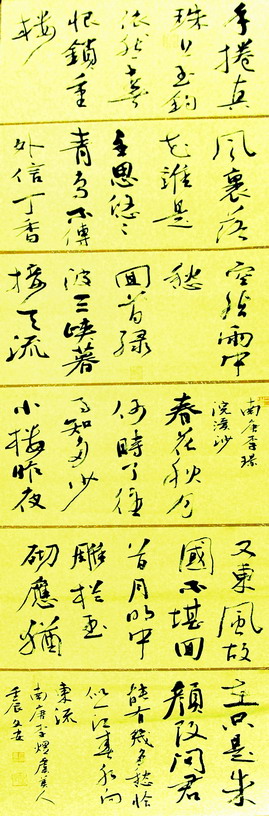 手捲真
珠上玉鈎
依然春
恨鎖重
樓
風裏落
花誰是
主思悠々
青鳥不傳
外信丁香
空結雨中
愁
回首綠
波三峽暮
接天流
南唐李璟
浣溪沙
春花秋月
何時了往
事知多少
小樓昨夜
又東風故
國不堪回
首月明中
雕栏玉
砌應猶
在只是朱
顏改問君
能有幾多愁恰
似一江春水向
東流
南唐李煜虞美人
壬辰文安